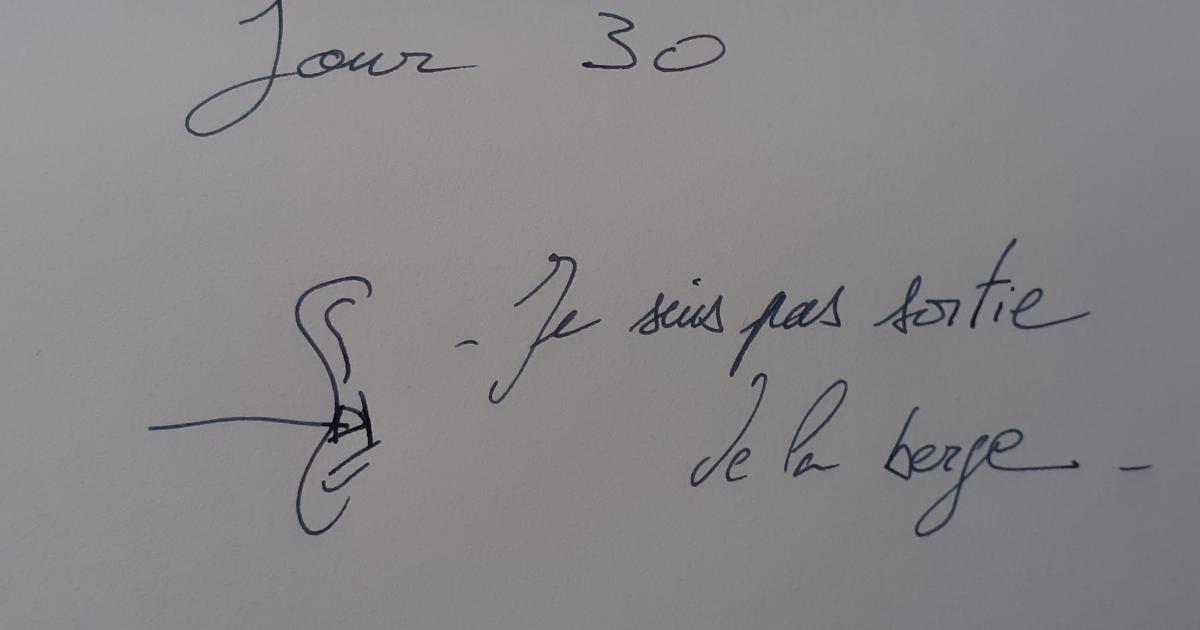 Jour 30
- Je suis pas sortie
de la berge -